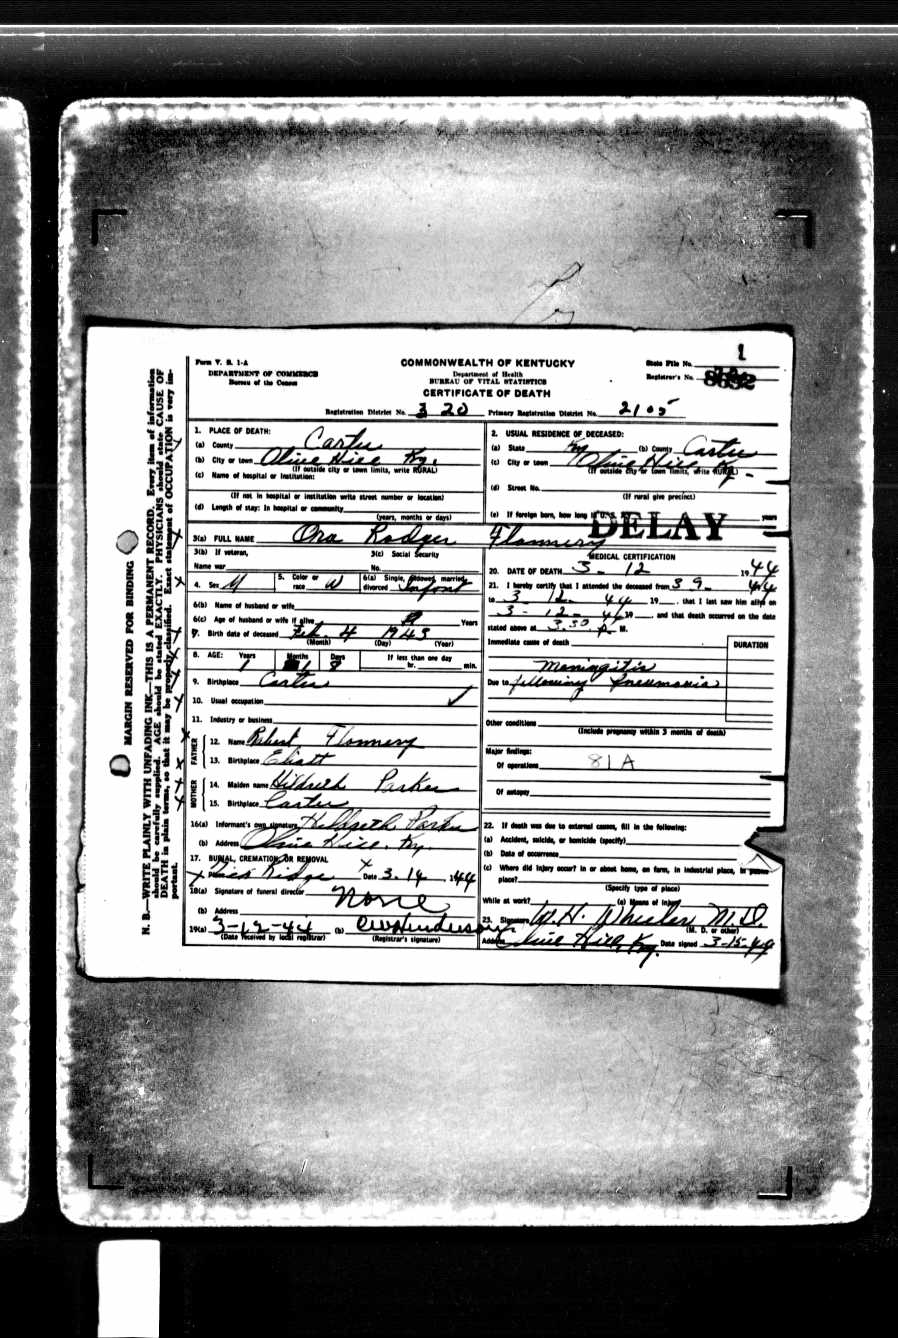 Form V. S. 1-A
DEPARTMENT OF COMMERCE
Bureau of the Census
COMMONWEALTH OF KENTUCKY
Department of Health
BUREAU OF VITAL STATISTICS
CERTIFICATE OF DEATH
State File No. 1
Registrar's No.
Registration District No. 320 Primary Registration District No. 2105
MARGIN RESERVED FOR BINDING
N. B.—WRITE PLAINLY WITH UNFADING INK—THIS IS A PERMANENT RECORD. Every item of information
should be carefully supplied. AGE should be stated EXACTLY. PHYSICIANS should state CAUSE OF
DEATH in plain terms, so that it may be properly classified. Exact statement of OCCUPATION is very im-
portant.
1. PLACE OF DEATH:
(a) County Carter
(b) City or town Olive Hill Ky.
(If outside city or town limits, write RURAL)
(c) Name of hospital or institution:
(If not in hospital or institution write street number or location)
(d) Length of stay: In hospital or community
(years, months or days)
2. USUAL RESIDENCE OF DECEASED:
(a) State Ky (b) County Carter
(c) City or town Olive Hill Ky.
(If outside city or town limits, write RURAL)
(d) Street No.
(If rural give precinct)
(e) If foreign born, how long in U. S. years
DELAY
3(a) FULL NAME Ora Rodger Flannery
3(b) If veteran,
Name war
3(c) Social Security
No.
4. Sex M
5. Color or race W
6(a) Single, widowed, married, divorced Infant
6(b) Name of husband or wife
6(c) Age of husband or wife if alive Years
7. Birth date of deceased Feb. 4 1943
(Month) (Day) (Year)
8. AGE: Years Months Days If less than one day
1 1 8 hr. min.
9. Birthplace Carter
10. Usual occupation
11. Industry or business
FATHER
12. Name Robert Flannery
13. Birthplace Eliott
MOTHER
14. Maiden name Hildreth Parker
15. Birthplace Carter
16(a) Informant's own signature Hildreth Parker
(b) Address Olive Hill, Ky.
17. BURIAL, CREMATION, OR REMOVAL
Place Ridge Date 3-14 1944
18(a) Signature of funeral director None
(b) Address
19(a) 3-12-44 (b) CW Henderson
(Date received by local registrar) (Registrar's signature)
MEDICAL CERTIFICATION
20. DATE OF DEATH 3-12 1944
21. I hereby certify that I attended the deceased from 3 9- 44
to 3-12-44 19, that I last saw him alive on
3-12-44 19 and that death occurred on the date
stated above at 3.30 P. M.
Immediate cause of death
DURATION
Meningitis
Due to following Pneumonia
Other conditions
(Include pregnancy within 3 months of death)
Major findings:
Of operations 81A
Of autopsy
22. If death was due to external causes, fill in the following:
(a) Accident, suicide, or homicide (specify)
(b) Date of occurrence
(c) Where did injury occur? in or about home, on farm, in industrial place, in public
place?
(Specify type of place)
While at work? (e) Means of injury
23. Signature W.H. Wheeler M.D.
(M. D. or other)
Address Olive Hill, Ky. Date signed 3-15-44